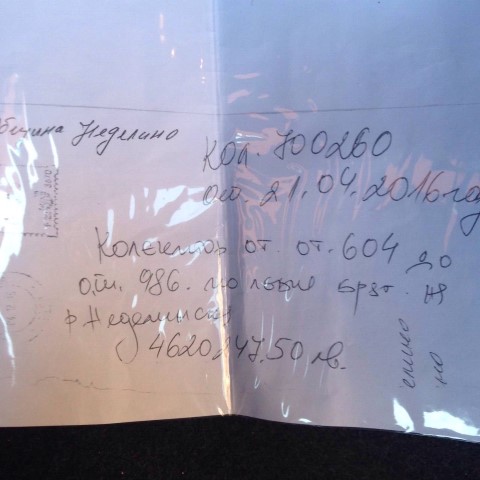 бщина Неделино
Кол. Ю0260
от. 21.04.2016 го
Колектор от. от. 604 до
от. 986. по левие бряг. на
р. Неделинска
4620247.50 лв.